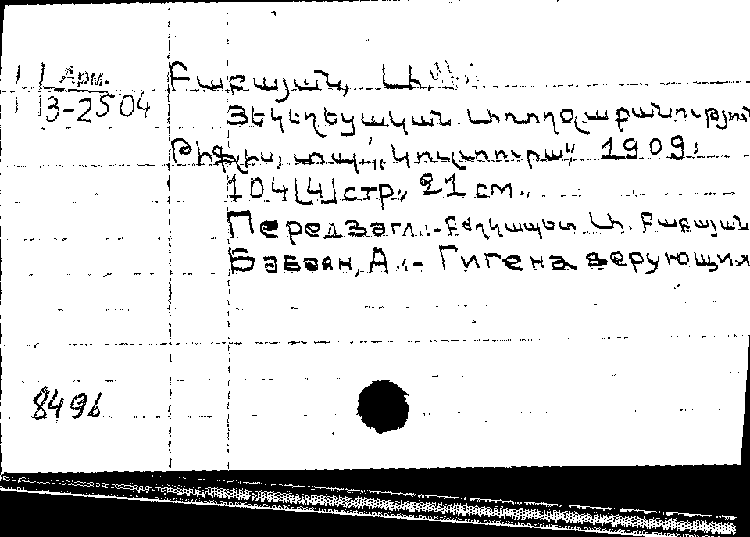 Арм.
3-2504
Բաբայան, Ա.
Յեկեղեցական առողջաբանություն
Թիֆլիս, տպ. „Կուլտուրա“, 1909։
104[4]стр., 21 см.
Перед загл.- Բժշկապետ Ա. Բաբայան
Бабаян, А.- Гигена верующих
849ь